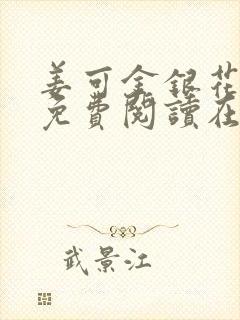 姜可金銀花
免費閱讀在
武景江